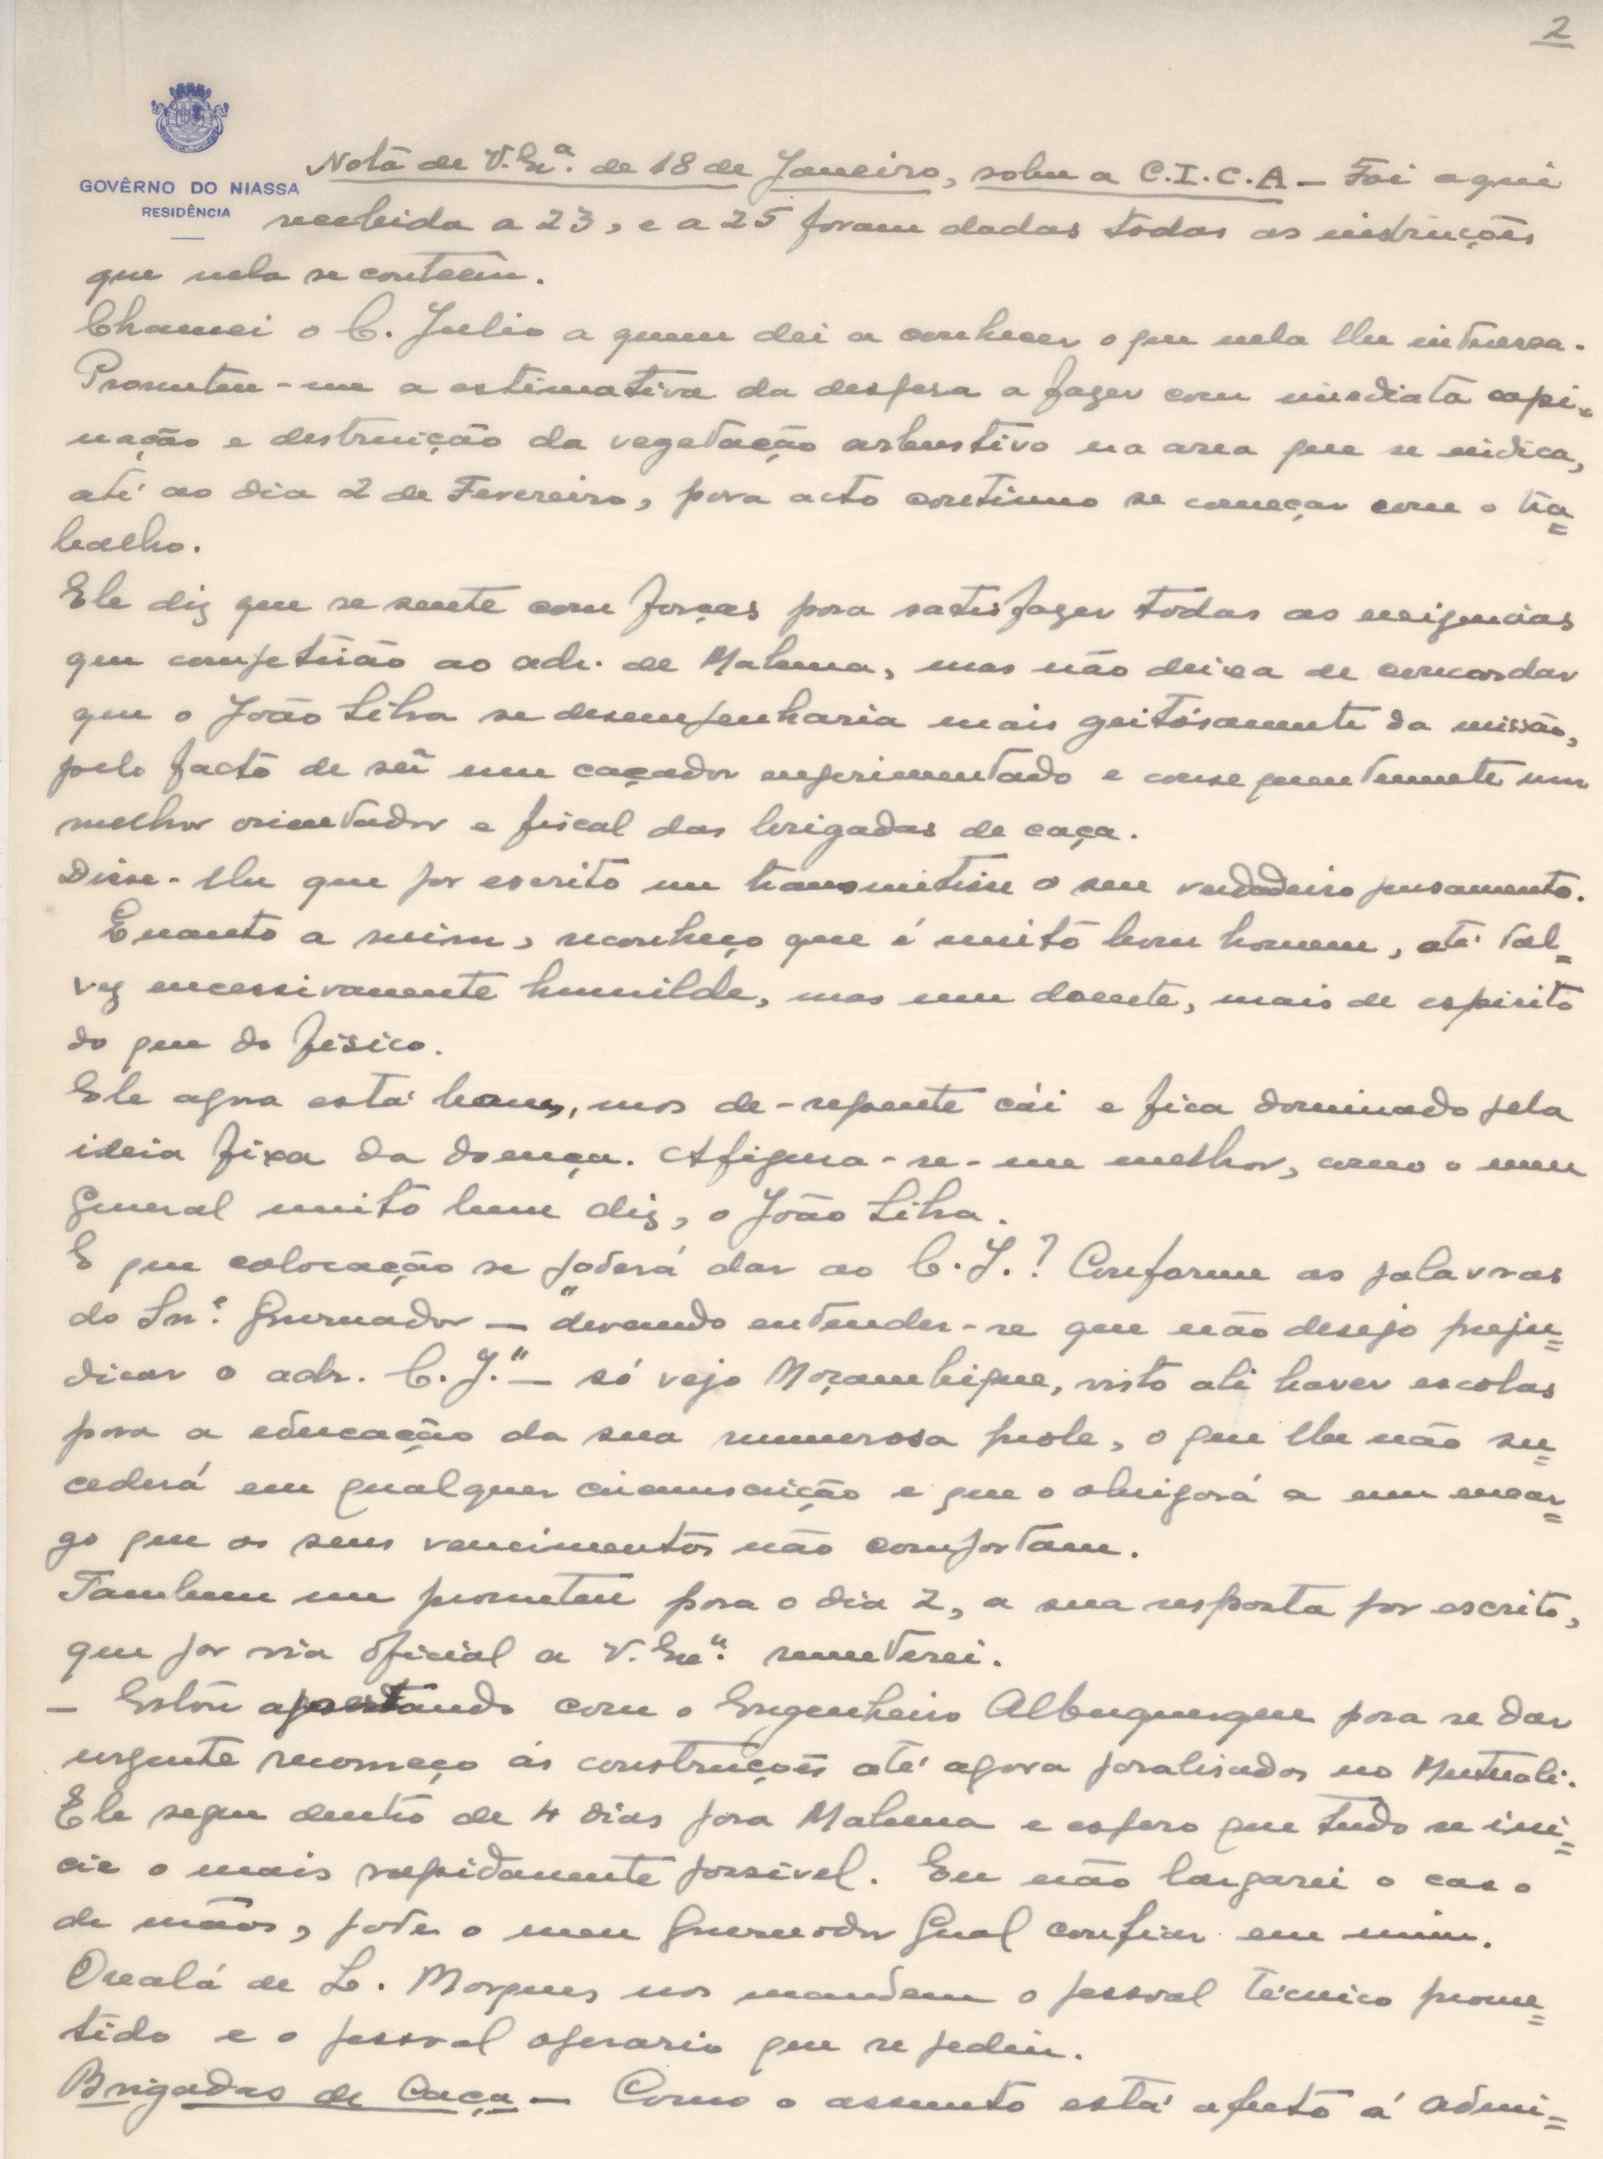 2
GOVÊRNO DO NIASSA
RESIDÊNCIA
Nota de V. Exª. de 18 de Janeiro, sobre a C.I.C.A — Foi aqui
recebida a 23, e a 25 foram dadas todas as instruções
que nela se conteem.
Chamei o C. Julio a quem dei a conhecer o que nela lhe interessa.
Prometeu-me a estimativa da despesa a fazer com imediata capi-
nação e destruição da vegetação arbustiva na area que se indica,
até ao dia 2 de Fevereiro, para acto continuo se começar com o tra=
balho.
Ele diz que se sente com forças para satisfazer todas as exigencias
que competirão ao adr. de Malema, mas não deixa de concordar
que o João Silva se desempenharia mais geitósamente da missão,
pelo facto de ser um caçador experimentado e consequentemente um
melhor orientador e fiscal das brigadas de caça.
Disse-lhe que por escrito me transmitisse o seu verdadeiro pensamento.
Enquanto a mim, reconheço que é muito bom homem, até tal=
vez excessivamente humilde, mas um doente, mais de espirito
do que do fisico.
Ele agora está bom, mas de-repente cái e fica dominado pela
ideia fixa da doença. Afigura-se-me melhor, como o meu
General muito bem diz, o João Silva.
E que colocação se poderá dar ao C. J.? Conforme as palavras
do Snr. Governador — "devendo entender-se que não desejo preju=
dicar o adr. C. J." — só vejo Moçambique, visto ali haver escolas
para a educação da sua numerosa prole, o que lhe não su=
cederá em qualquer circunscrição e que o obrigará a um encar=
go que os seus vencimentos não comportam.
Tambem me prometeu para o dia 2, a sua resposta por escrito,
que por via oficial a V. Exª. remeterei.
— Estou apertando com o Engenheiro Albuquerque para se dar
urgente recomeço ás construções até agora paralisadas no Mutuali.
Ele segue dentro de 4 dias para Malema e espero que tudo se ini=
cie o mais rapidamente possivel. Eu não largarei o caso
de mãos, pode o meu Governador Geral confiar em mim.
Oxalá de L. Marques nos mandem o pessoal técnico prome=
tido e o pessoal operario que se pediu.
Brigadas de Caça — Como o assunto está afecto á Admi=